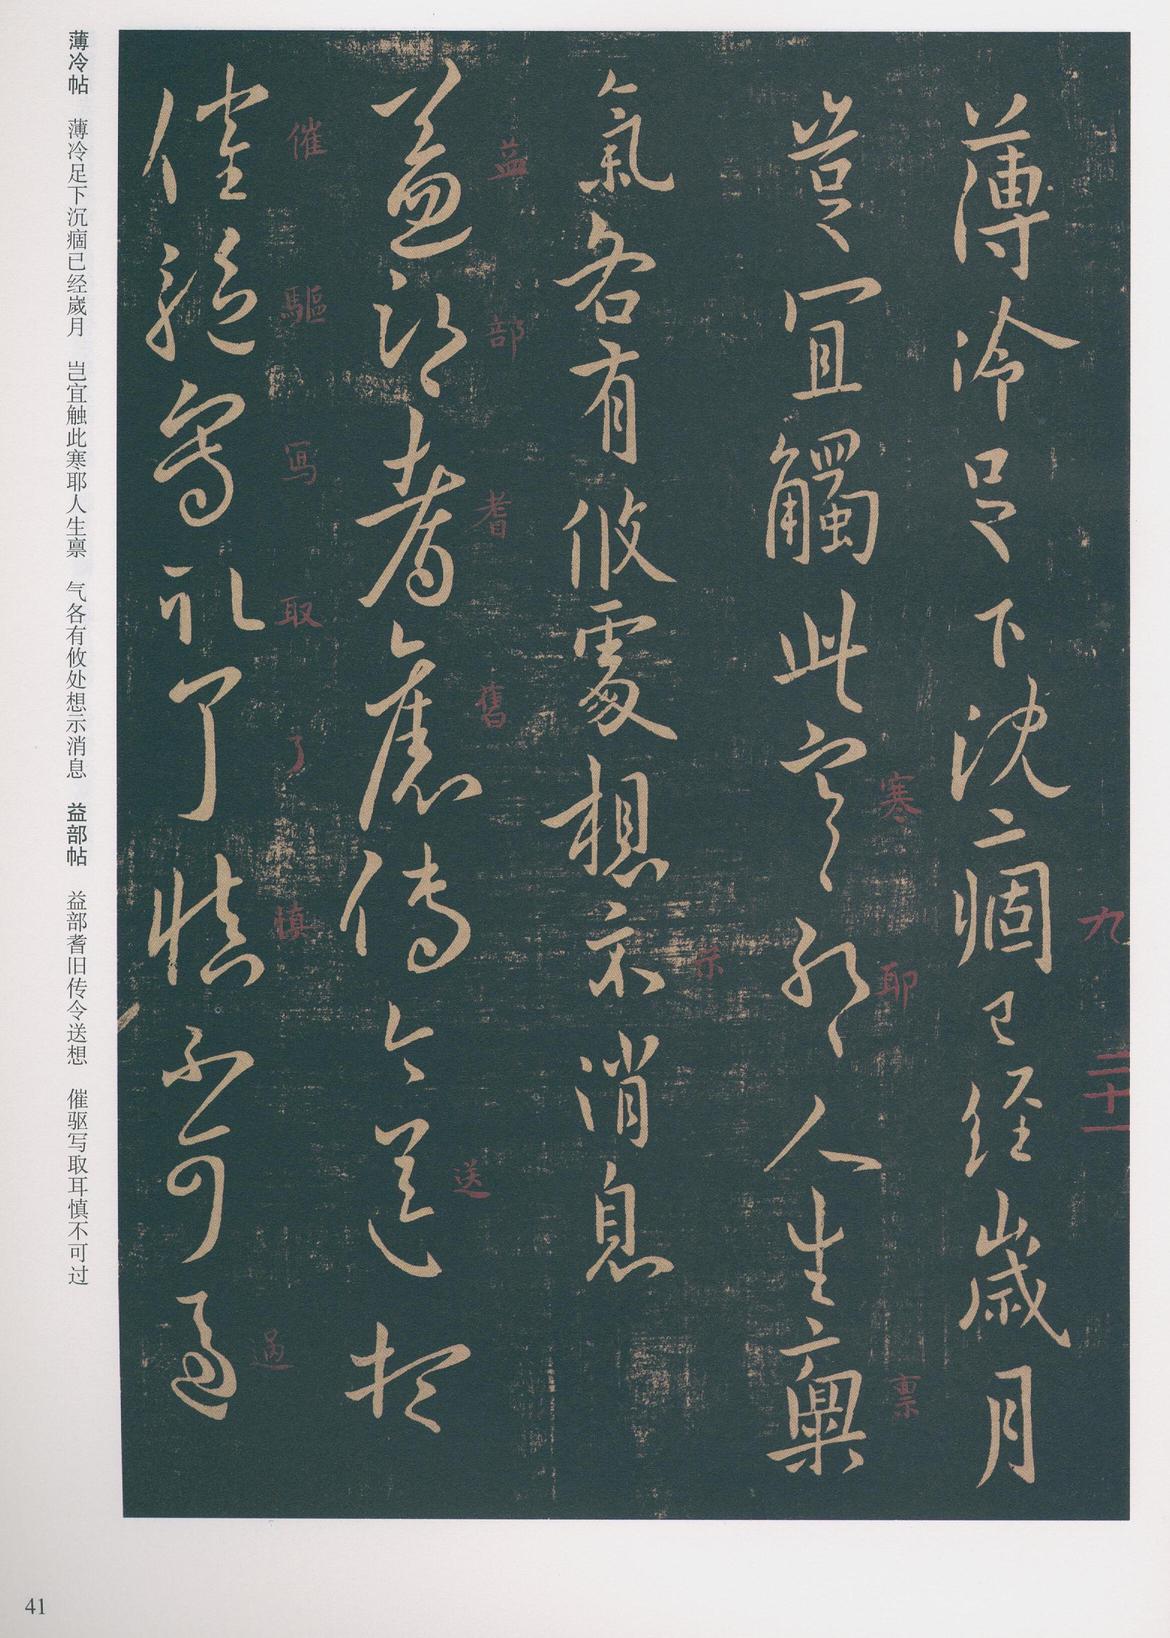 薄冷足下沈痼已经歲月
豈宜觸此寒耶人生稟
氣各有攸處想示消息
益部耆舊傳令送想
催驅寫取了慎不可過
九
二十一
寒
耶
稟
益
部
耆
舊
送
催
驅
寫
取
了
慎
過
薄冷帖 薄冷足下沉痼已经嵗月 岂宜触此寒耶人生禀 气各有攸处想示消息 益部帖 益部耆旧传令送想 催驱写取耳慎不可过
41